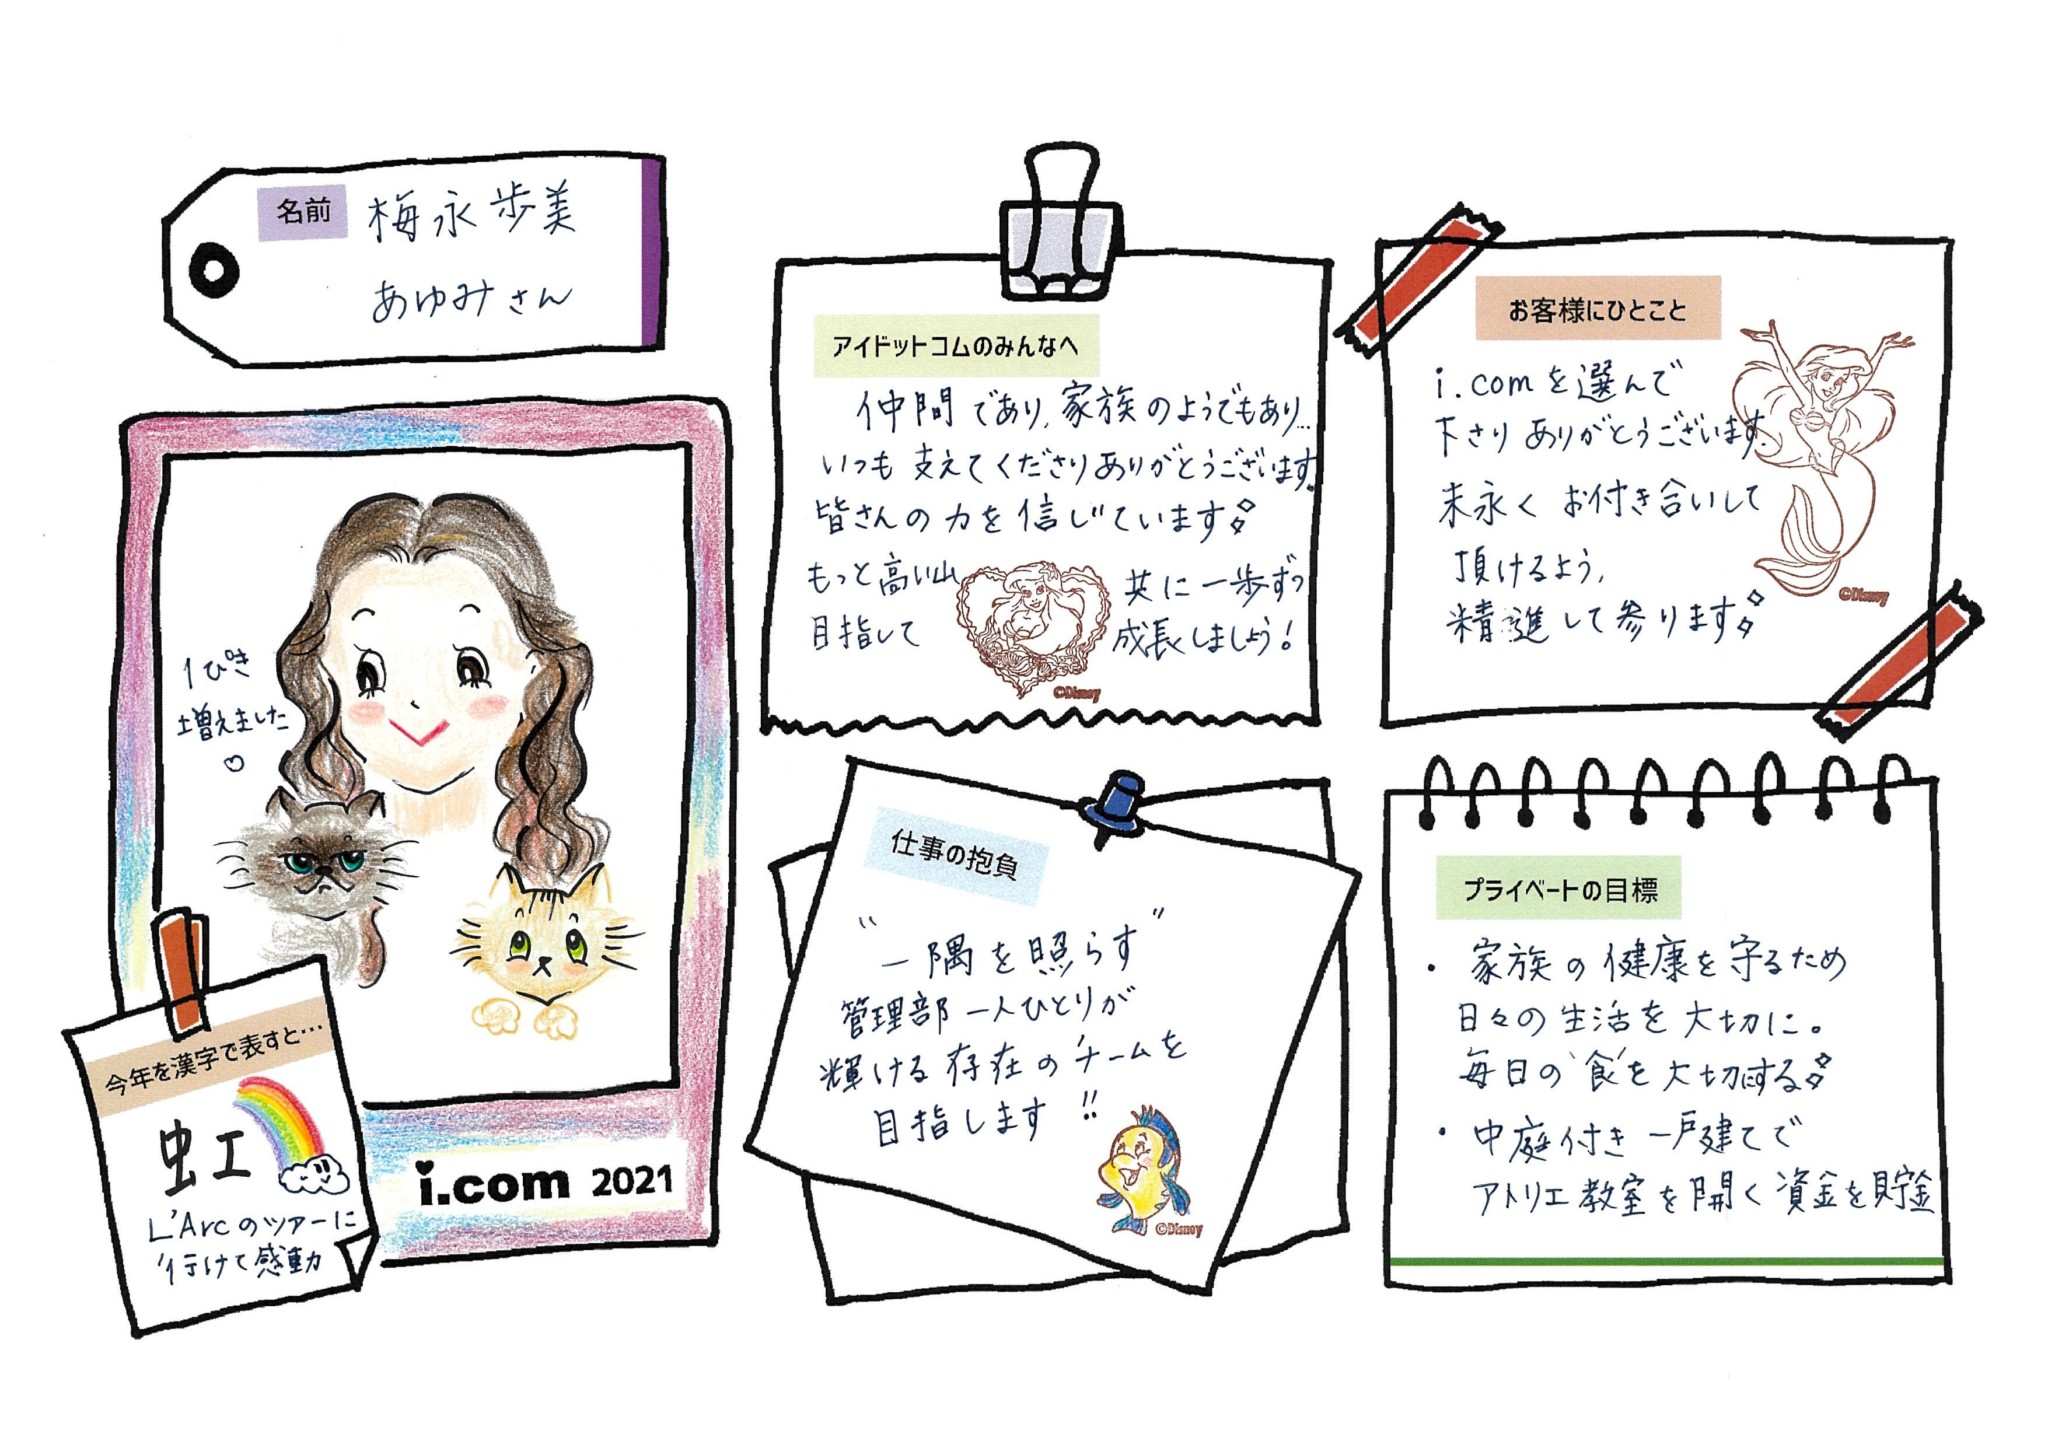 名前
梅永歩美
あゆみさん
1ぴき
増えました
♡
今年を漢字で表すと…
虹
L'Arcのツアーに
行けて感動
i.com 2021
アイドットコムのみんなへ
仲間であり、家族のようでもあり…
いつも支えてくださりありがとうございます。
皆さんの力を信じています
もっと高い山
目指して
共に一歩ずつ
成長しましょう!
©Disney
お客様にひとこと
i.comを選んで
下さりありがとうございます。
末永くお付き合いして
頂けるよう、
精進して参ります
©Disney
仕事の抱負
"一隅を照らす"
管理部一人ひとりが
輝ける存在のチームを
目指します!!
©Disney
プライベートの目標
・家族の健康を守るため
日々の生活を大切に。
毎日の'食'を大切にする
・中庭付き一戸建てで
アトリエ教室を開く資金を貯金